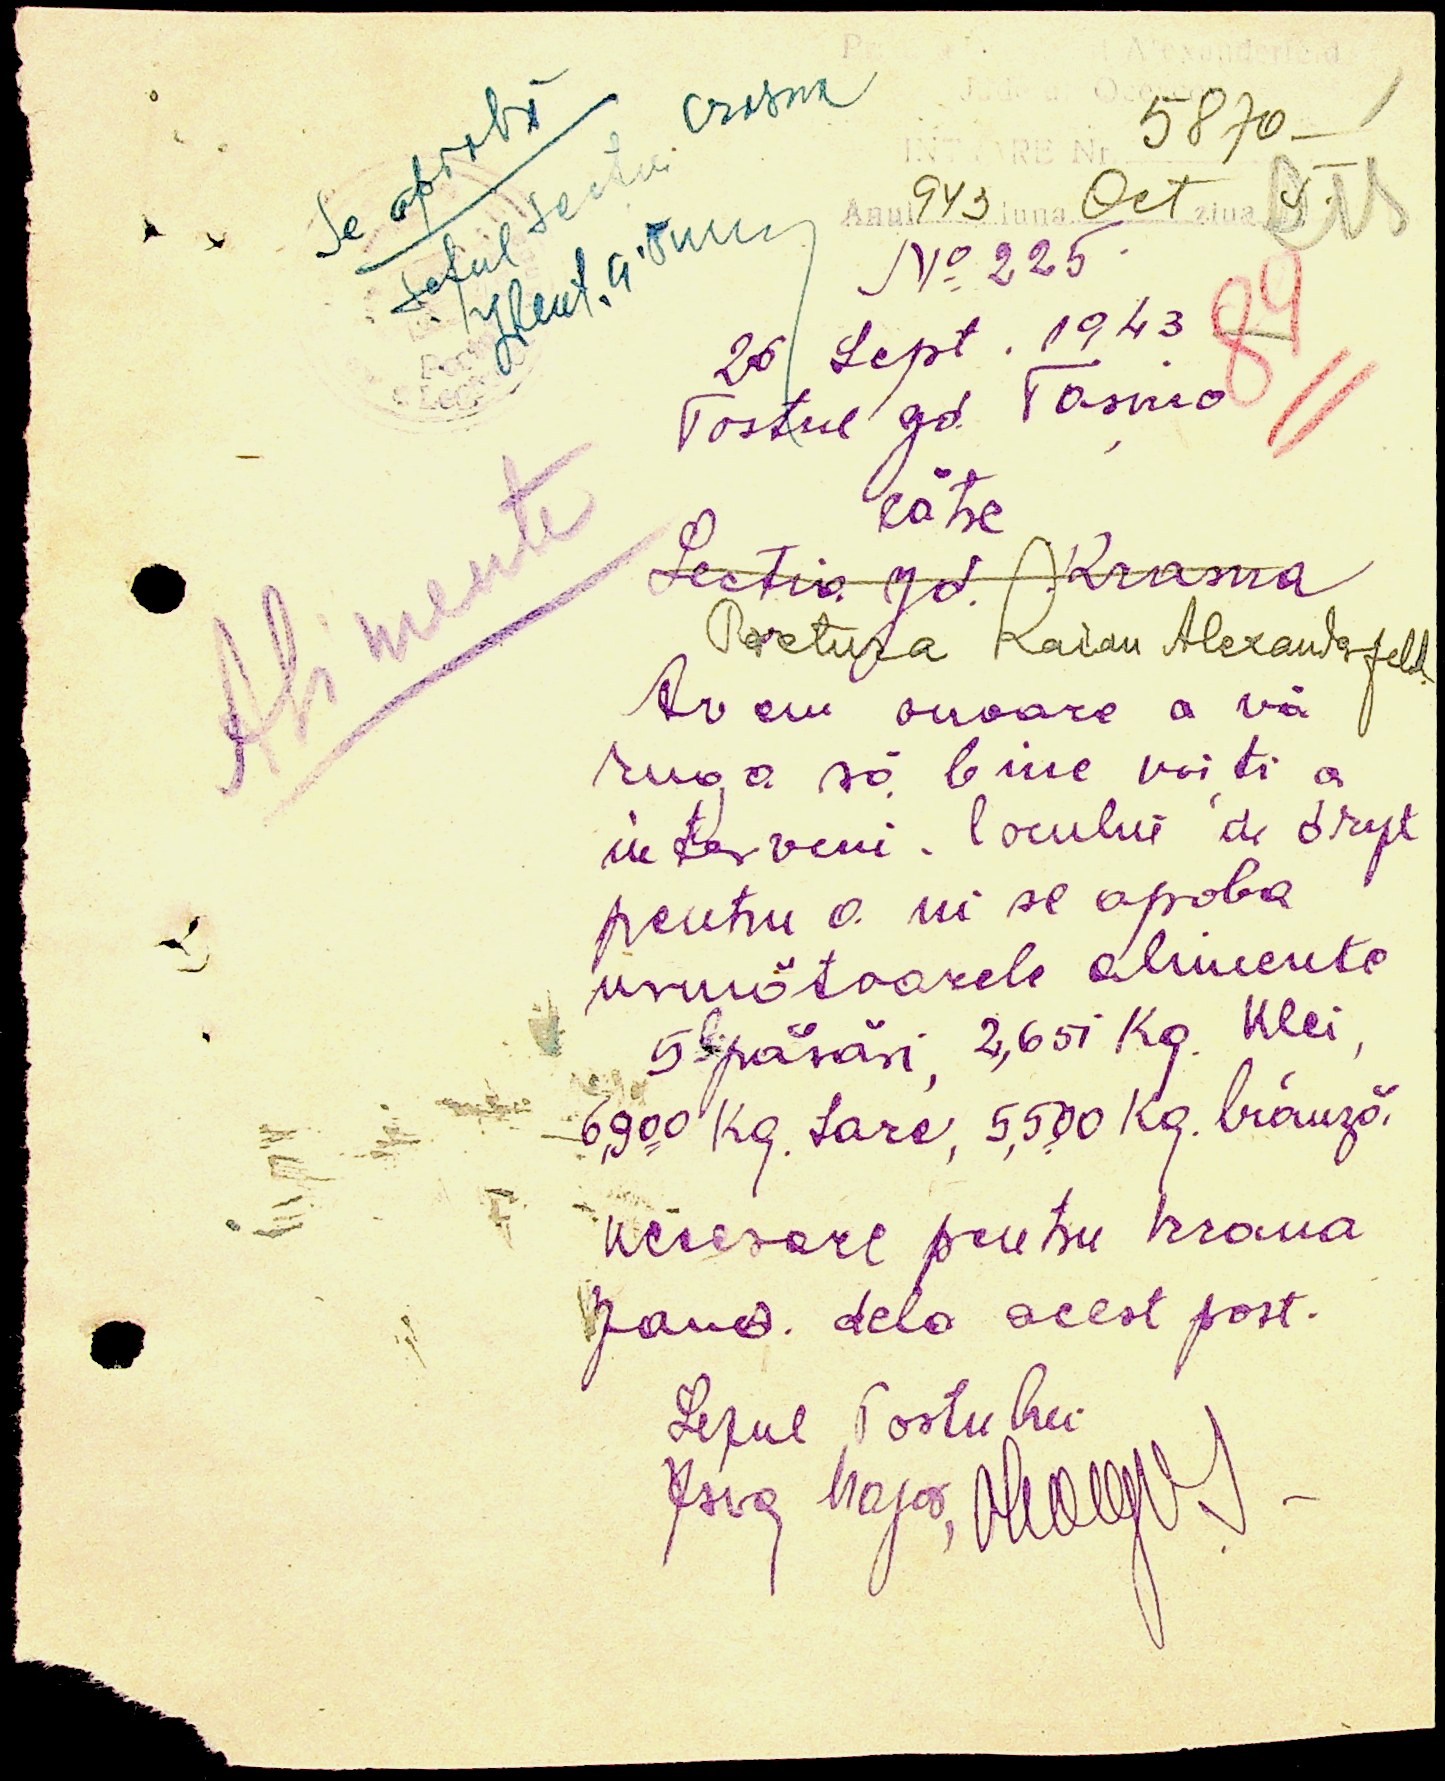 Se aprobă
Șeful Secției Crasna
Alexanderfeld
INTRARE Nr. 5870
Anul 943 luna Oct ziua 4
No 225
26 Sept. 1943
Postul jd. Tasino
către
Secția jd. Krasna
Pretura Raion Alexanderfeld
Avem onoare a vă
ruga să bine voiți a
interveni locului de drept
pentru a ni se aproba
următoarele alimente
5 păsări, 2,651 Kg. Ulei,
6,900 Kg. Sare, 5,500 Kg. brânză
necesare pentru hrana
jand. dela acest post.
Șeful Postului
Major,
Alimente
84